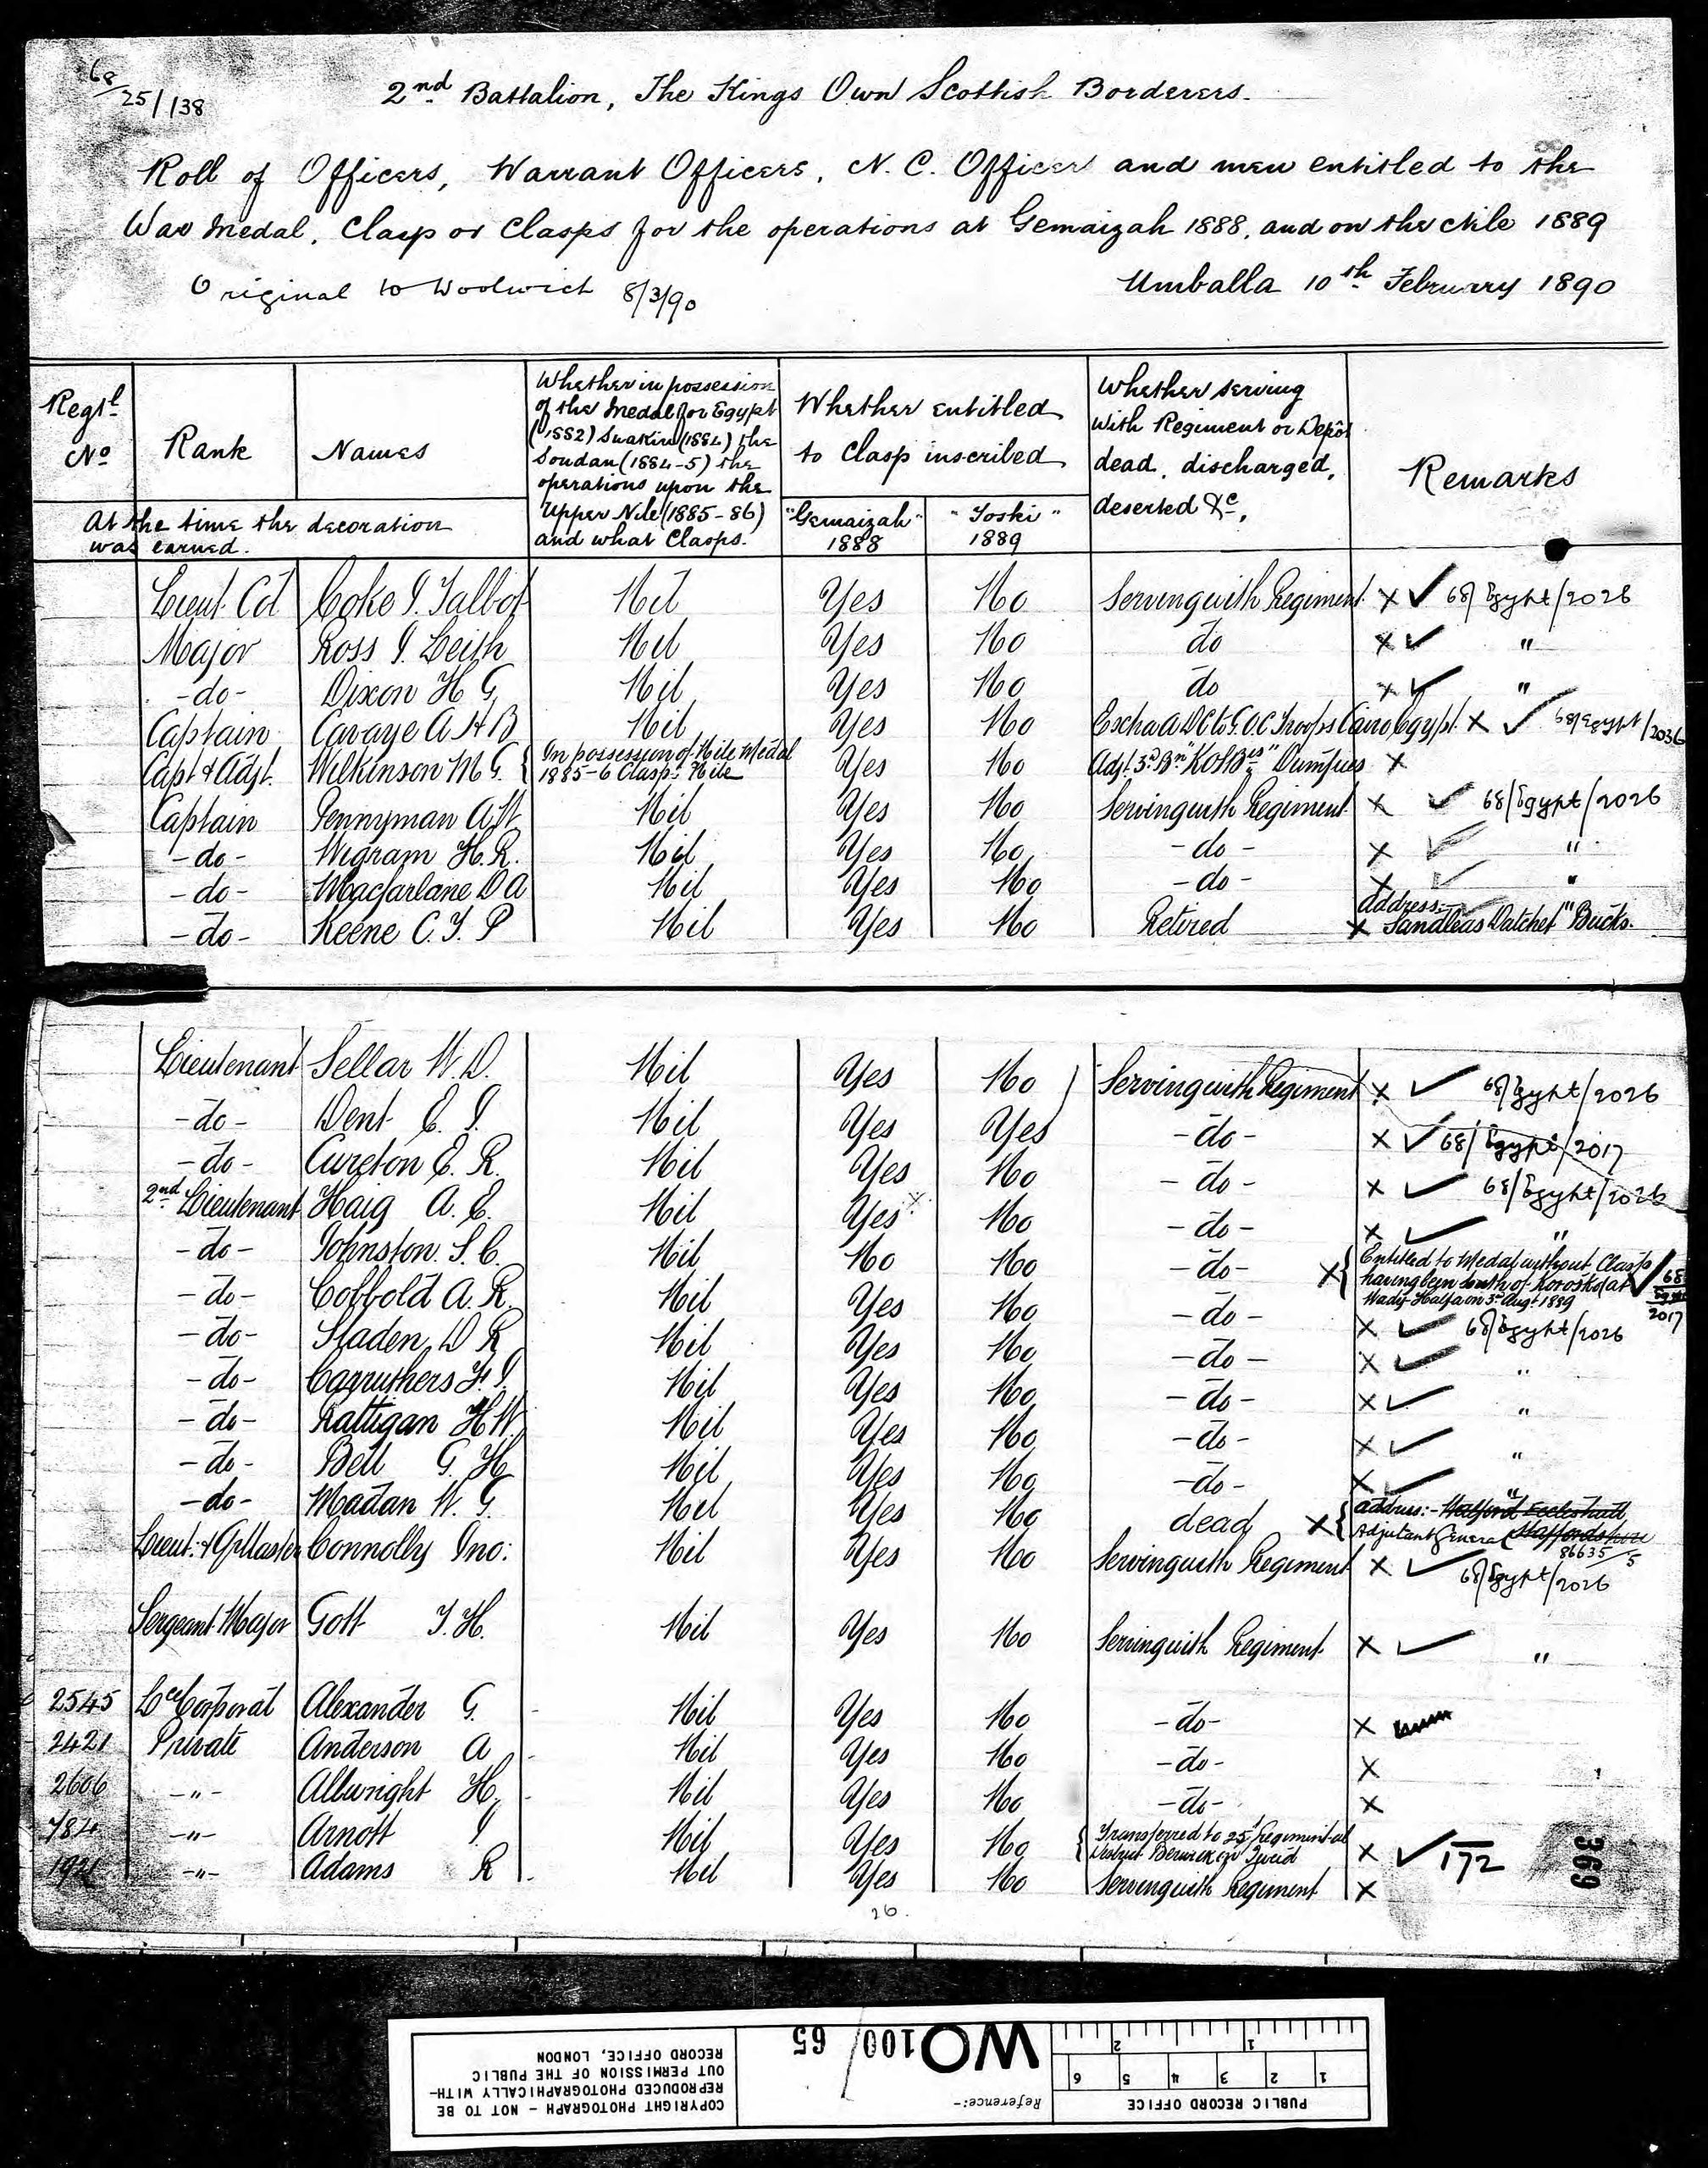 68/25/138
2nd Battalion, The Kings Own Scottish Borderers.
Roll of Officers, Warrant Officers, N. C. Officers and men entitled to the
War Medal, Clasp or Clasps for the operations at Gemaizah 1888, and on the Nile 1889
Original to Woolwich 8/3/90 Umballa 10th February 1890
Regtl No Rank Names
At the time the decoration was earned.
Whether in possession of the Medal for Egypt (1882) Suakin (1884) the Soudan (1884-5) the operations upon the Upper Nile (1885-86) and what Clasps.
Whether entitled to Clasp inscribed
"Gemaizah" 1888 "Toski" 1889
Whether serving with Regiment or Depôt dead, discharged, deserted &c,
Remarks
Lieut Col Coke J. Talbot Nil Yes No Serving with Regiment x ✓ 68/Egypt/2026
Major Ross J. Leith Nil Yes No do x ✓ "
-do- Dixon H G Nil Yes No do x ✓ "
Captain Cavaye A H B Nil Yes No Extra ADC to G.O.C Troops Cairo Egypt x ✓ 68/Egypt/2036
Capt & Adjt. Wilkinson M G { In possession of Nile Medal 1885-6 Clasp: Nile Yes No Adjt 3rd Bn "KOSBs" Dumfries x
Captain Pennyman A W Nil Yes No Serving with Regiment x ✓ 68/Egypt/2026
-do- Wigram H. R. Nil Yes No -do- x ✓ "
-do- Macfarlane D A Nil Yes No -do- x ✓ "
-do- Keene C. T. P Nil Yes No Retired x address:- Sandleas Datchet "Bucks.
Lieutenant Sellar W. D. Nil Yes No Serving with Regiment x ✓ 68/Egypt/2026
-do- Dent E. J. Nil Yes Yes -do- x ✓ 68/Egypt/2017
-do- Cureton E. R. Nil Yes No -do- x ✓ 68/Egypt/2026
2nd Lieutenant Haig A. E. Nil Yes x No -do- x ✓ "
-do- Johnston. S. C. Nil No No -do- x { Entitled to Medal without Clasp having been South of Korosko (at Wady Halfa on 3rd Augt 1889 ✓ 68/Egypt/2017
-do- Cobbold A. R. Nil Yes No -do- x ✓ 68/Egypt/2026
-do- Sladen D R Nil Yes No -do- x ✓ "
-do- Carruthers F. J. Nil Yes No -do- x ✓ "
-do- Rattigan H W. Nil Yes No -do- x ✓ "
-do- Bell G. H Nil Yes No -do- x ✓ "
-do- Madan W. G. Nil Yes No dead x { address:- Eccleshall, Staffordshire Adjutant General 86635/5
Lieut: & Qr Master Connolly Jno: Nil Yes No Serving with Regiment x ✓ 68/Egypt/2026
Sergeant Major Gott T. H. Nil Yes No Serving with Regiment x ✓ "
2545 Lce Corporal Alexander G. Nil Yes No -do- x
2421 Private Anderson A Nil Yes No -do- x
2606 -"- Allwright H. Nil Yes No -do- x
784 -"- Arnott J Nil Yes No { Transferred to 25th Regimental District Berwick on Tweed x ✓ 172
1921 -"- Adams R Nil Yes No Serving with Regiment x
26.
369
PUBLIC RECORD OFFICE
1 2 3 4 5 6
1 2
Reference:-
WO 100/65
COPYRIGHT PHOTOGRAPH - NOT TO BE
REPRODUCED PHOTOGRAPHICALLY WITH-
OUT PERMISSION OF THE PUBLIC
RECORD OFFICE, LONDON